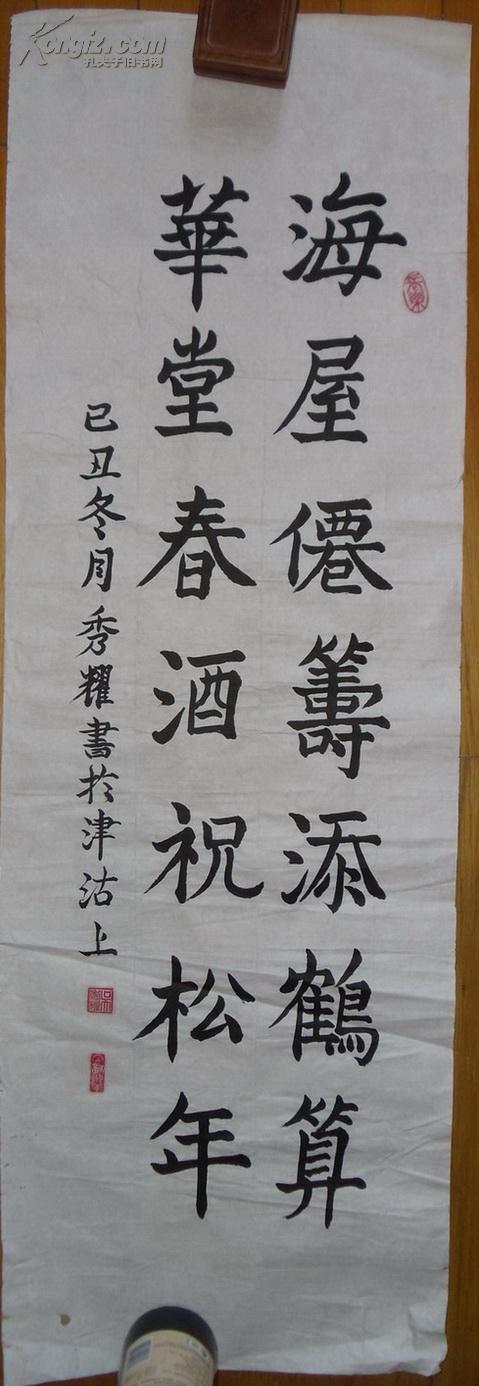 海屋僊籌添鶴算
華堂春酒祝松年
已丑冬月秀耀書於津沽上
Kongfz.com
孔夫子旧书网